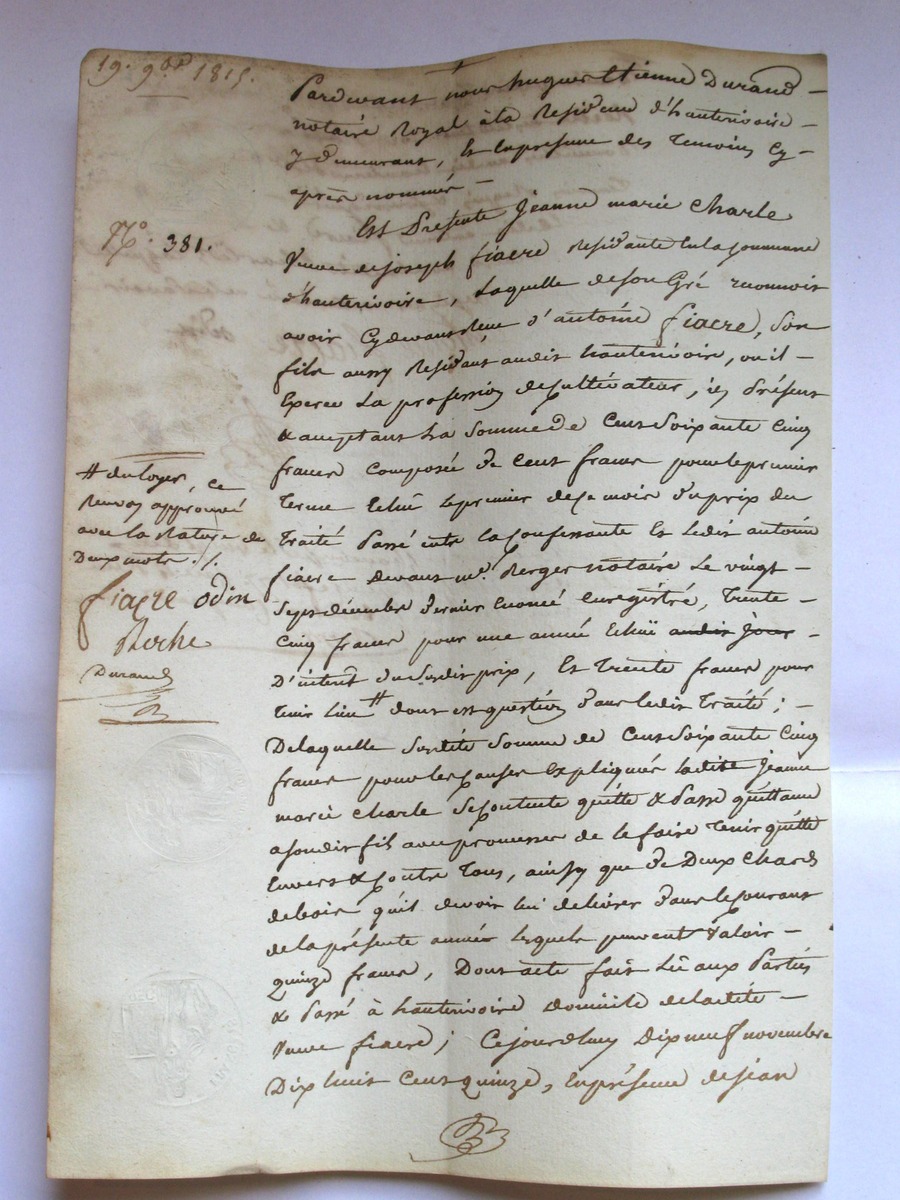 19. 9bre 1815.
Pardevant nous hugues Etienne Durand -
notaire Royal à la Residence d'hauterivoire -
y demeurant, Et En presence des Temoins Cy -
après nommés -
Est Présente Jeanne marie Charle
N°. 381.
veuve de joseph fiacre Residante En la Commune
d'hauterivoire, Laquelle de son Gré reconnoit
avoir Cy devant Reçu d'antoine fiacre, Son
fils aussy Residant audit hauterivoire, ou il -
Exerce La profession de Cultivateur, icy Présent
& acceptant La Somme de Cent Soixante Cinq
francs Composée de Cent francs pour le premier
Terme Echû le premier de Ce mois du prix du
Traité Passé entre la Confessante Et Ledit antoine
fiacre devant me. Berger notaire Le vingt -
Sept décembre dernier Enoncé Enregistré, Trente -
Cinq francs pour une année Echüe audit jour -
D'interet du Susdit prix, Et Trente francs pour
Tenir Lieu # dont est question dans ledit Traité ; -
De laquelle Susdite Somme de Cent Soixante Cinq
francs pour les Causes Expliquées Ladite Jeanne
marie Charle Se Contente quitte & Passe quittance
a Son dit fils avec promesse de le faire Tenir quitte
Envers & Contre Tous, ainsy que de Deux Chards
de bois qu'il devoit lui delivrer dans le Courant
de la présente année lesquels peuvent valoir -
quinze francs, Dont acte fait Lû aux Parties
& Passé à hauterivoire domicile de ladite -
veuve fiacre ; Cejourdhuy Dix neuf novembre
Dix huit Cent quinze, En présence de jean
# du loyer, Ce
Renvoy approuvé
avec la Rature de
Deux mots ./.
fiacre odin
Roche
Durand